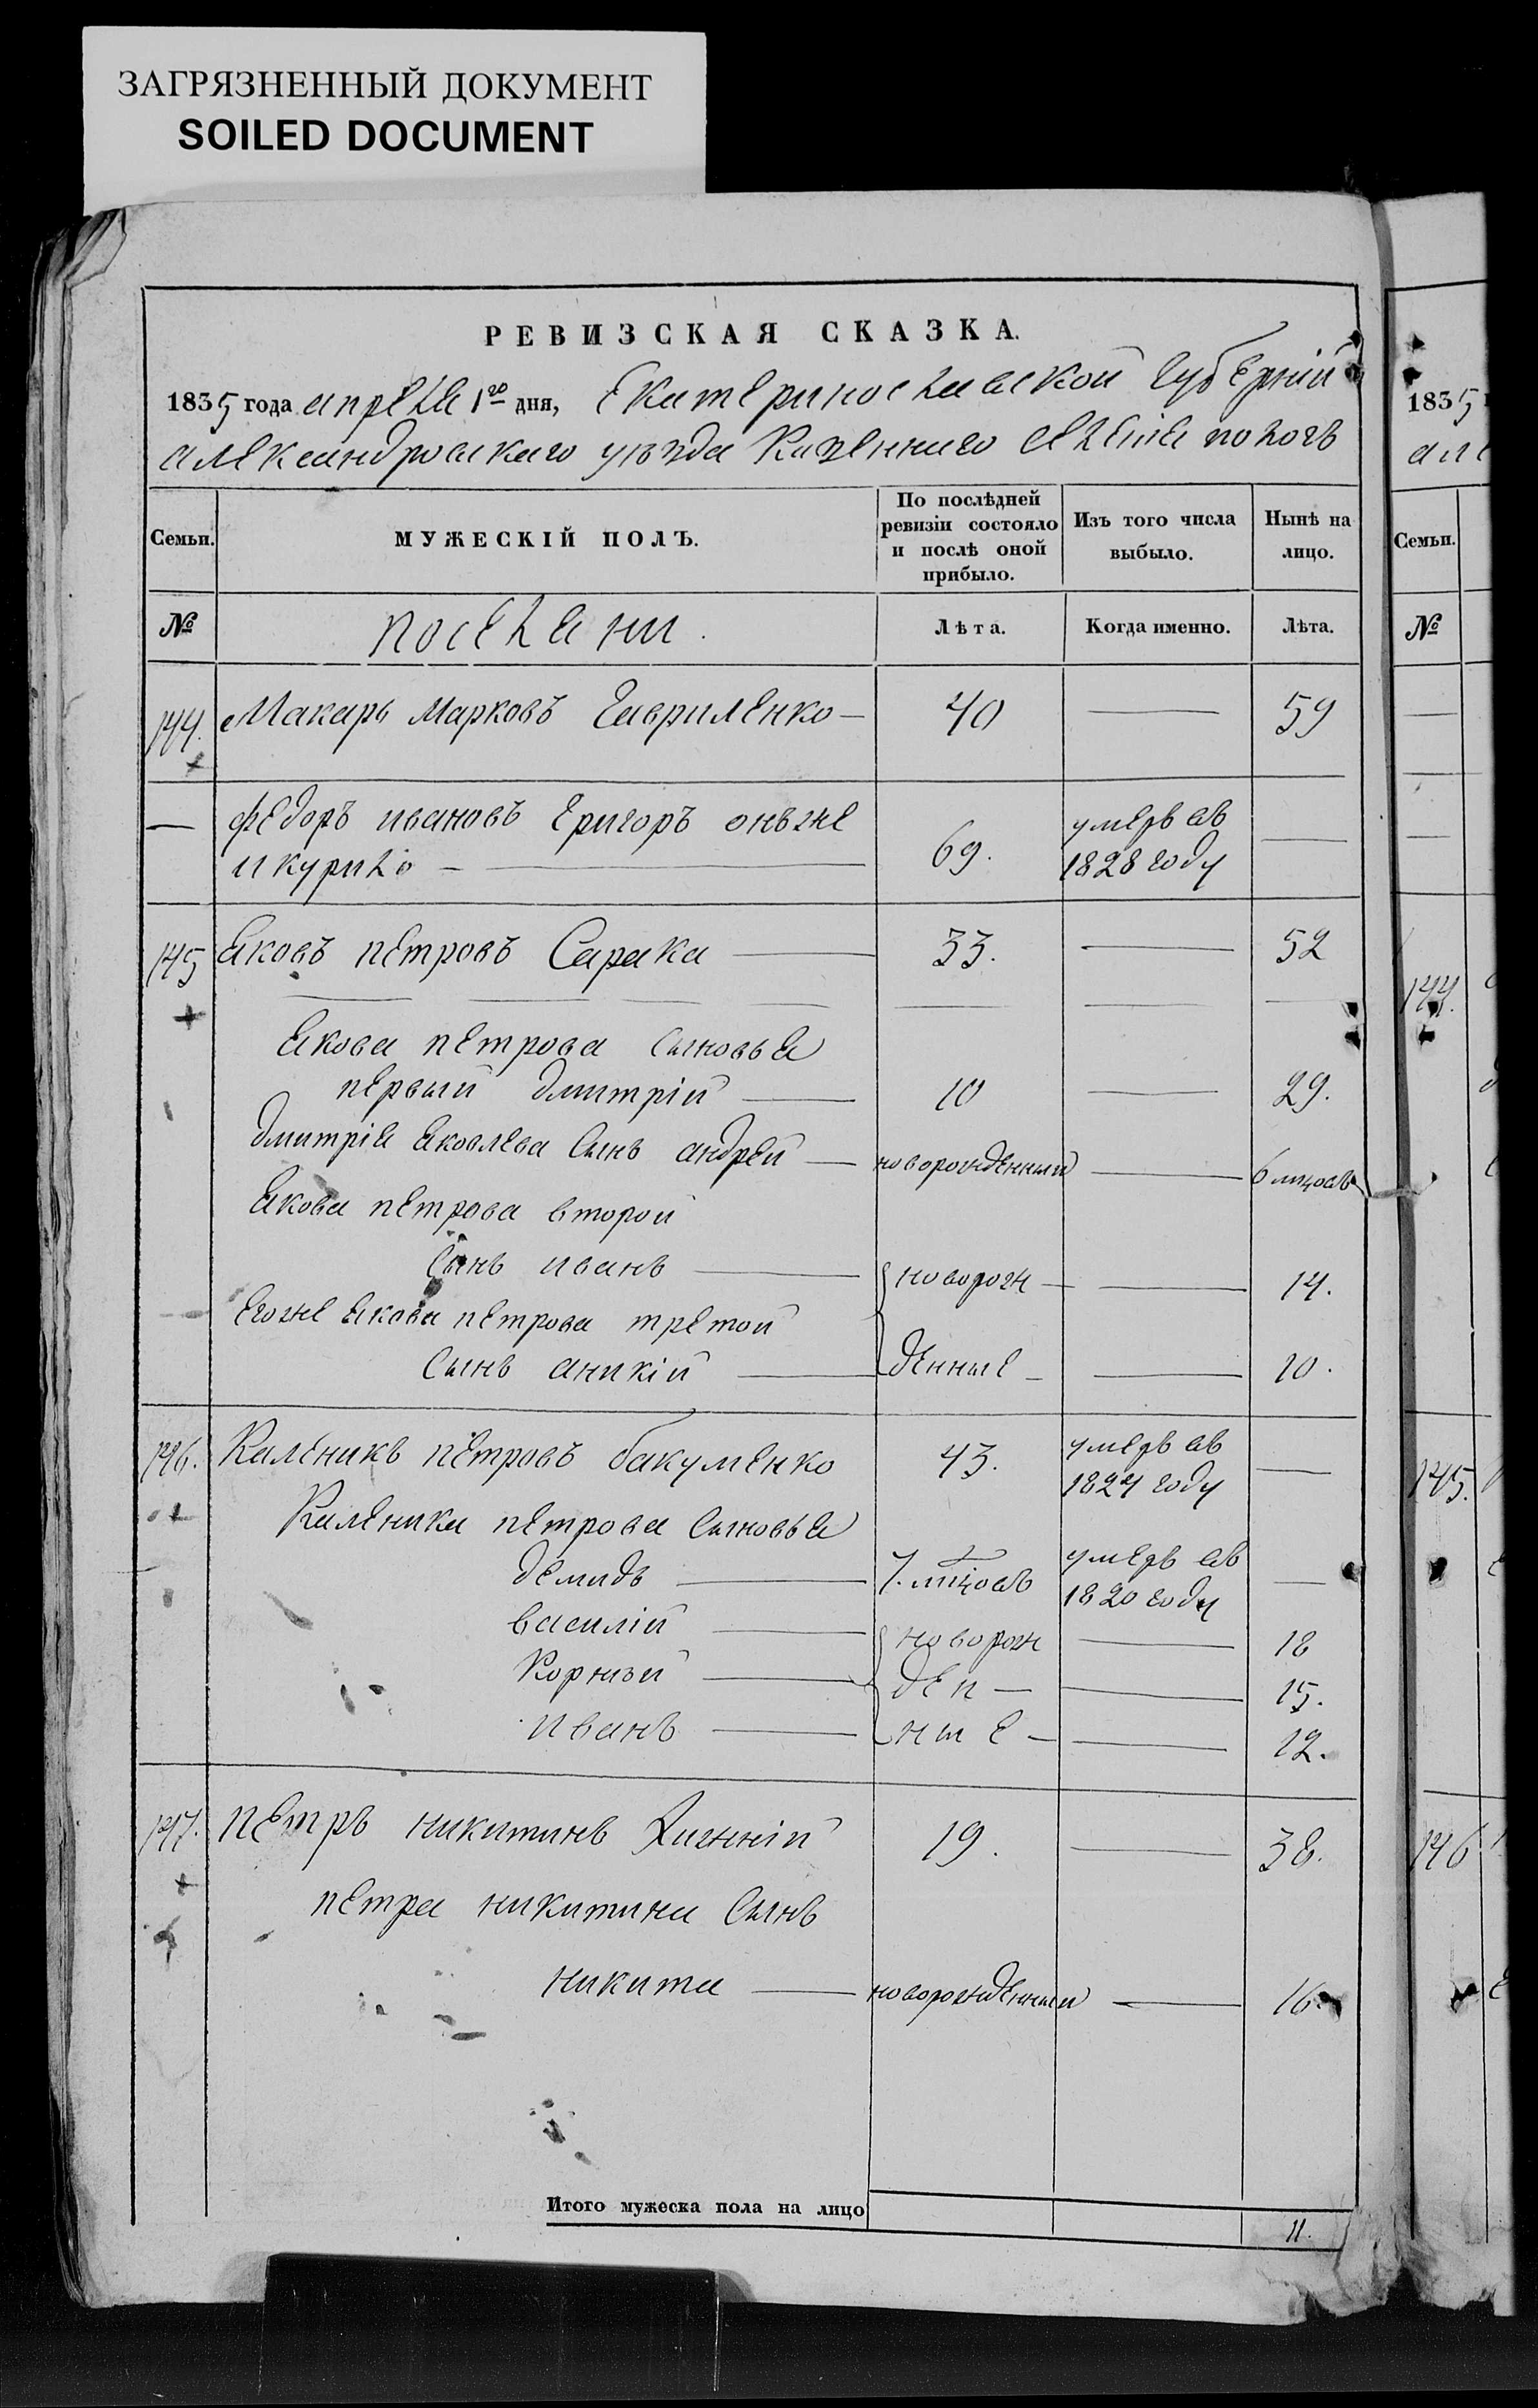 ЗАГРЯЗНЕННЫЙ ДОКУМЕНТ
SOILED DOCUMENT
РЕВИЗСКАЯ СКАЗКА.
1835 года апреля 1го дня, Екатеринославской Губернии
александровскаго уѣзда Казеннаго селенія пологъ
Семьи. МУЖЕСКІЙ ПОЛЪ. По послѣдней ревизіи состояло и послѣ оной прибыло. Изъ того числа выбыло. Нынѣ на лицо.
№ поселяни. Лѣта. Когда именно. Лѣта.
144. Макаръ Марковъ Гавриленко — 40 — 59
— федоръ ивановъ Григоръ онъже 69. умеръ въ —
1828 году
145 Яковъ петровъ Сарака — 33. — 52
Якова петрова Сыновья
первый дмитрій — 10 — 29.
дмитрія Яковлева Сынъ андрей — новорожденный — 6 мцовъ
Якова петрова второй
Сынъ иванъ — новорож — — 14.
Егоже Якова петрова третой
Сынъ аникій — денные — — 10.
146. Каленикъ петровъ бакуменко 43. умеръ въ —
1824 году
Каленика петрова Сыновья
демидъ — 7. мцовъ умеръ въ —
1820 году
василій — новорож — 18
Корнѣй — ден — — 15.
иванъ — ные — — 12.
147. петръ никитинъ 19. — 38.
петра никитина Сынъ
никита — новорожденный — 16.
Итого мужеска пола на лицо 11.
1835
але
Семьи.
№
144.
145.
146